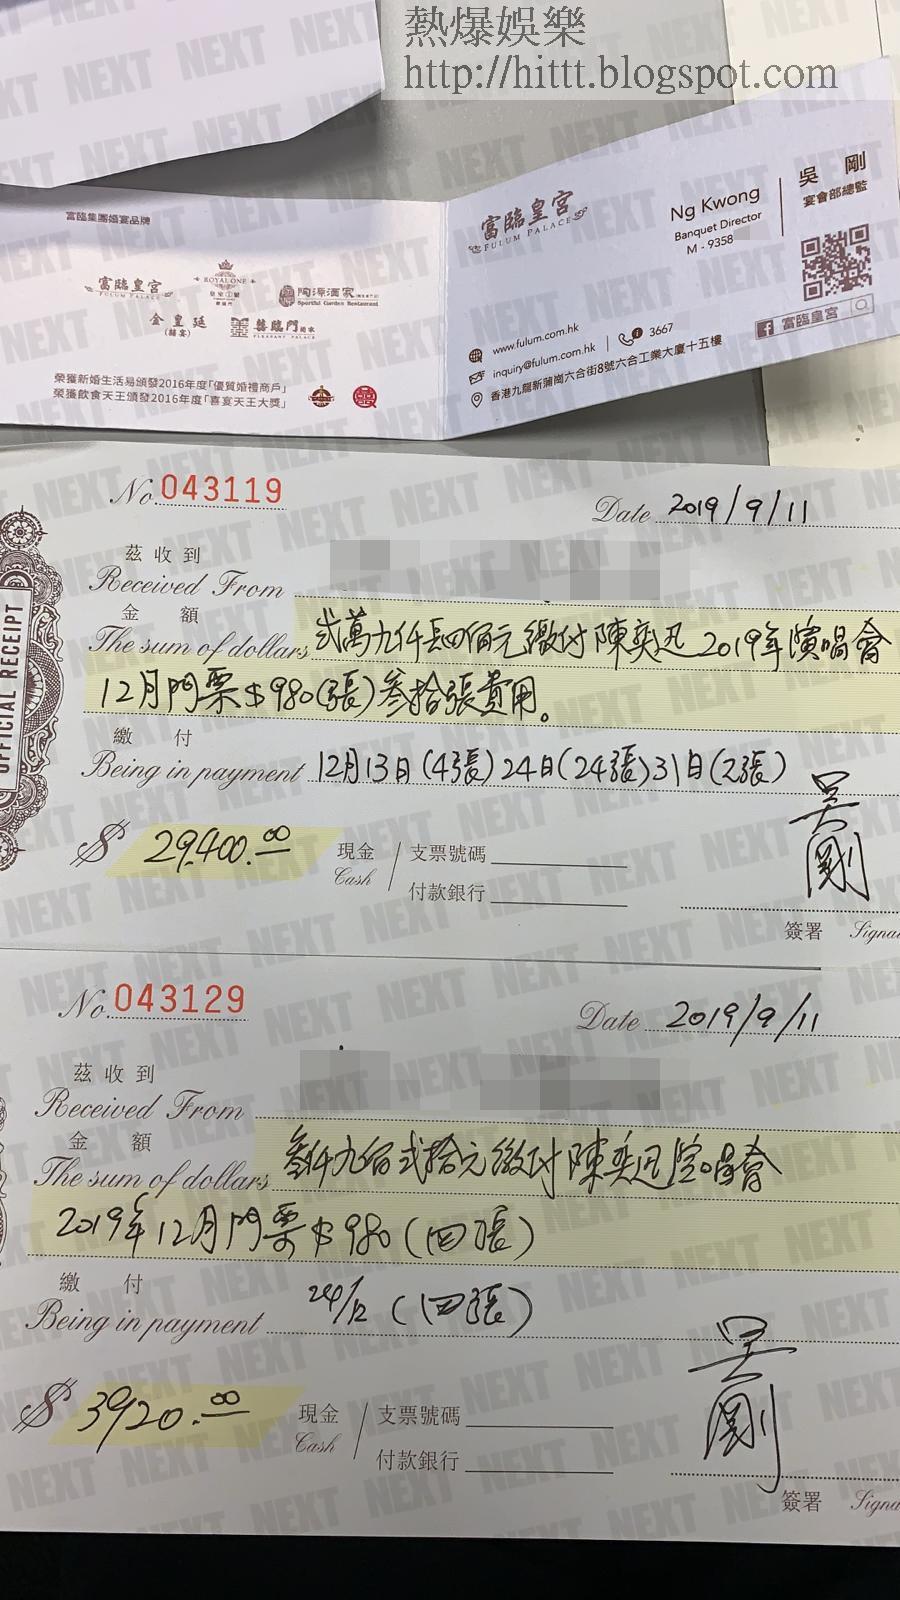 熱爆娛樂
http://hittt.blogspot.com
富臨集團婚宴品牌
富臨皇宮
FULUM PALACE
ROYAL ONE
皇室1號
陶源酒家
Sportful Garden Restaurant
金皇廷
(囍宴)
囍臨門
PLEASANT PALACE
榮獲新婚生活易頒發2016年度「優質婚禮商戶」
榮獲飲食天王頒發2016年度「喜宴天王大獎」
富臨皇宮
FULUM PALACE
Ng Kwong
Banquet Director
M - 9358
吳 剛
宴會部總監
www.fulum.com.hk
inquiry@fulum.com.hk
3667
香港九龍新蒲崗六合街8號六合工業大廈十五樓
富臨皇宮
OFFICIAL RECEIPT
No. 043119
Date 2019/9/11
茲收到
Received From
金 額
The sum of dollars 弍萬九仟四佰元繳付陳奕迅2019年演唱會
12月門票$980(張)叁拾張費用。
繳 付
Being in payment 12月13日(4張)24日(24張)31日(2張)
$ 29,400.00
現金
Cash
支票號碼
付款銀行
吳剛
簽署
No. 043129
Date 2019/9/11
茲收到
Received From
金 額
The sum of dollars 叁仟九佰弍拾元繳付陳奕迅演唱會
2019年12月門票$980(四張)
繳 付
Being in payment 24/12 (四張)
$ 3920.00
現金
Cash
支票號碼
付款銀行
吳剛
簽署
NEXT